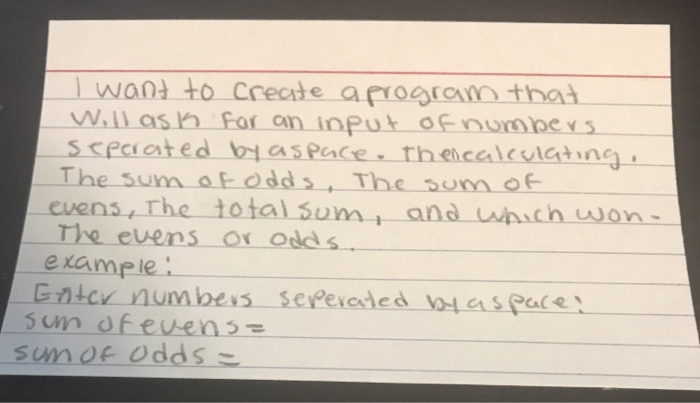 I want to create a program that
will ask for an input of numbers
seperated by a space. Then calculating.
The sum of odds, The sum of
evens, The total sum, and which won-
The evens or odds.
example:
Enter numbers seperated by a space:
sum of evens =
sum of odds =